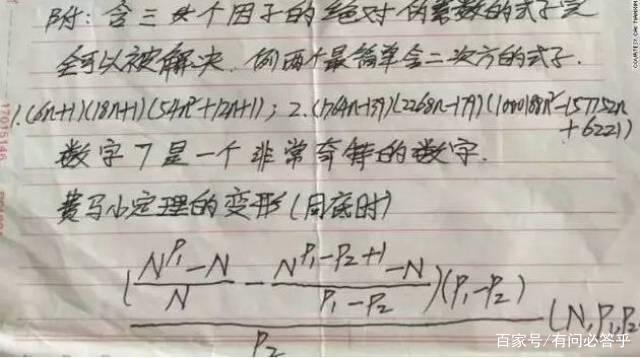 附：含三个因子的绝对伪素数的式子完
全可以被解决．例两个最简单含二次方的式子．
1.(6n+1)(18n+1)(54n²+12n+1)；2.(1764n-139)(2268n-179)(1000188n²-157752n
+6221)
数字7是一个非常奇特的数字．
费马小定理的变形(同底时)
((N^P₁-N)/N - (N^(P₁-P₂+1)-N)/(P₁-P₂))(P₁-P₂)/P₂ (N,P₁,P₂
百家号/有问必答乎